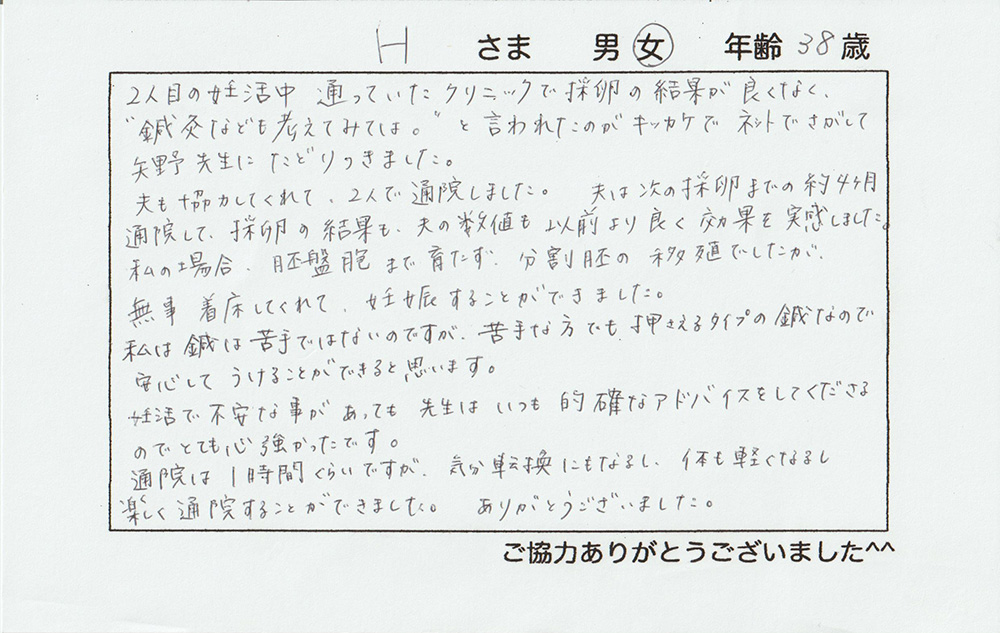 H さま 男 女 年齢 38 歳
2人目の妊活中 通っていたクリニックで採卵の結果が良くなく、
"鍼灸なども考えてみては。"と言われたのがキッカケでネットでさがして
矢野先生にたどりつきました。
夫も協力してくれて、2人で通院しました。 夫は次の採卵までの約4ヶ月
通院して、採卵の結果も、夫の数値も以前より良く効果を実感しました。
私の場合、胚盤胞まで育たず、分割胚の移殖でしたが、
無事着床してくれて、妊娠することができました。
私は鍼は苦手ではないのですが、苦手な方でも押さえるタイプの鍼なので
安心してうけることができると思います。
妊活で不安な事があっても先生はいつも的確なアドバイスをしてくださる
のでとても心強かったです。
通院は1時間くらいですが、気分転換にもなるし、体も軽くなるし
楽しく通院することができました。 ありがとうございました。
ご協力ありがとうございました^^